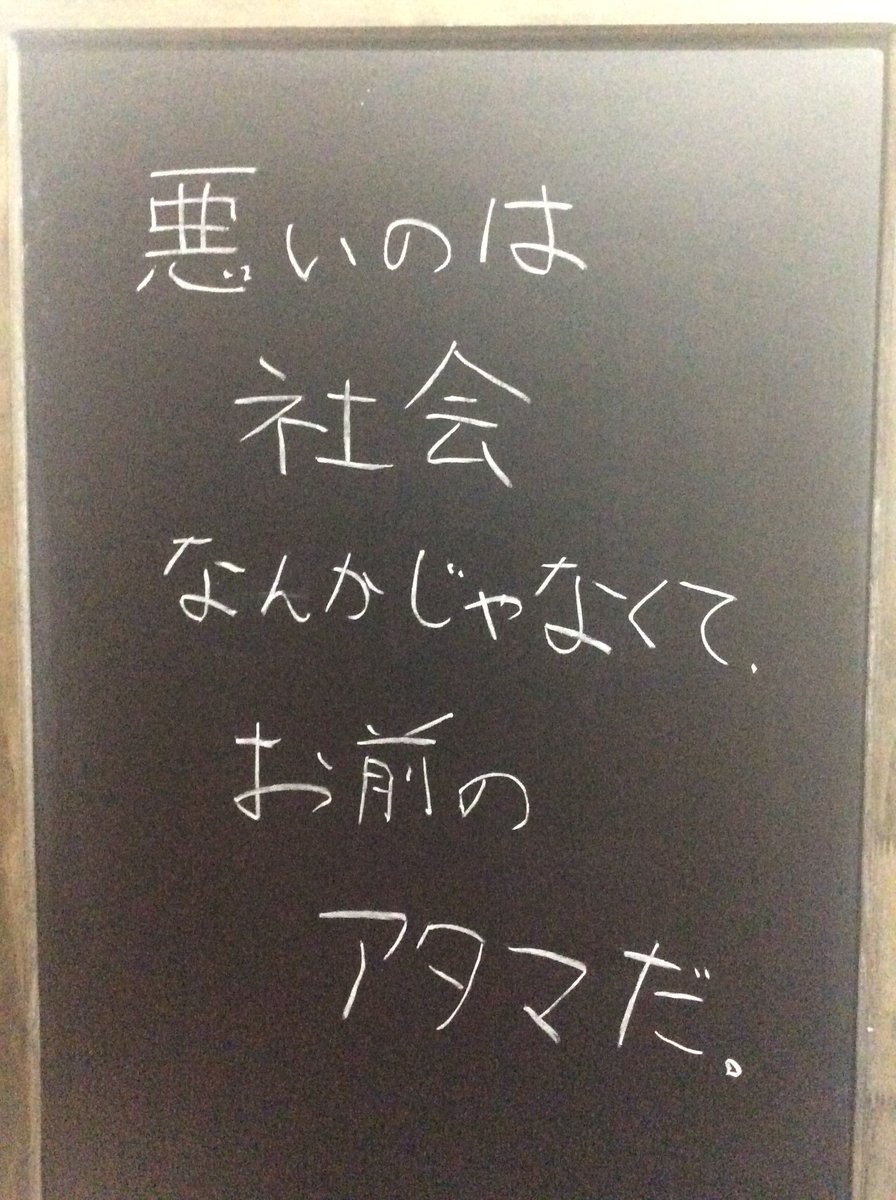 悪いのは
社会
なんかじゃなくて、
お前の
アタマだ。